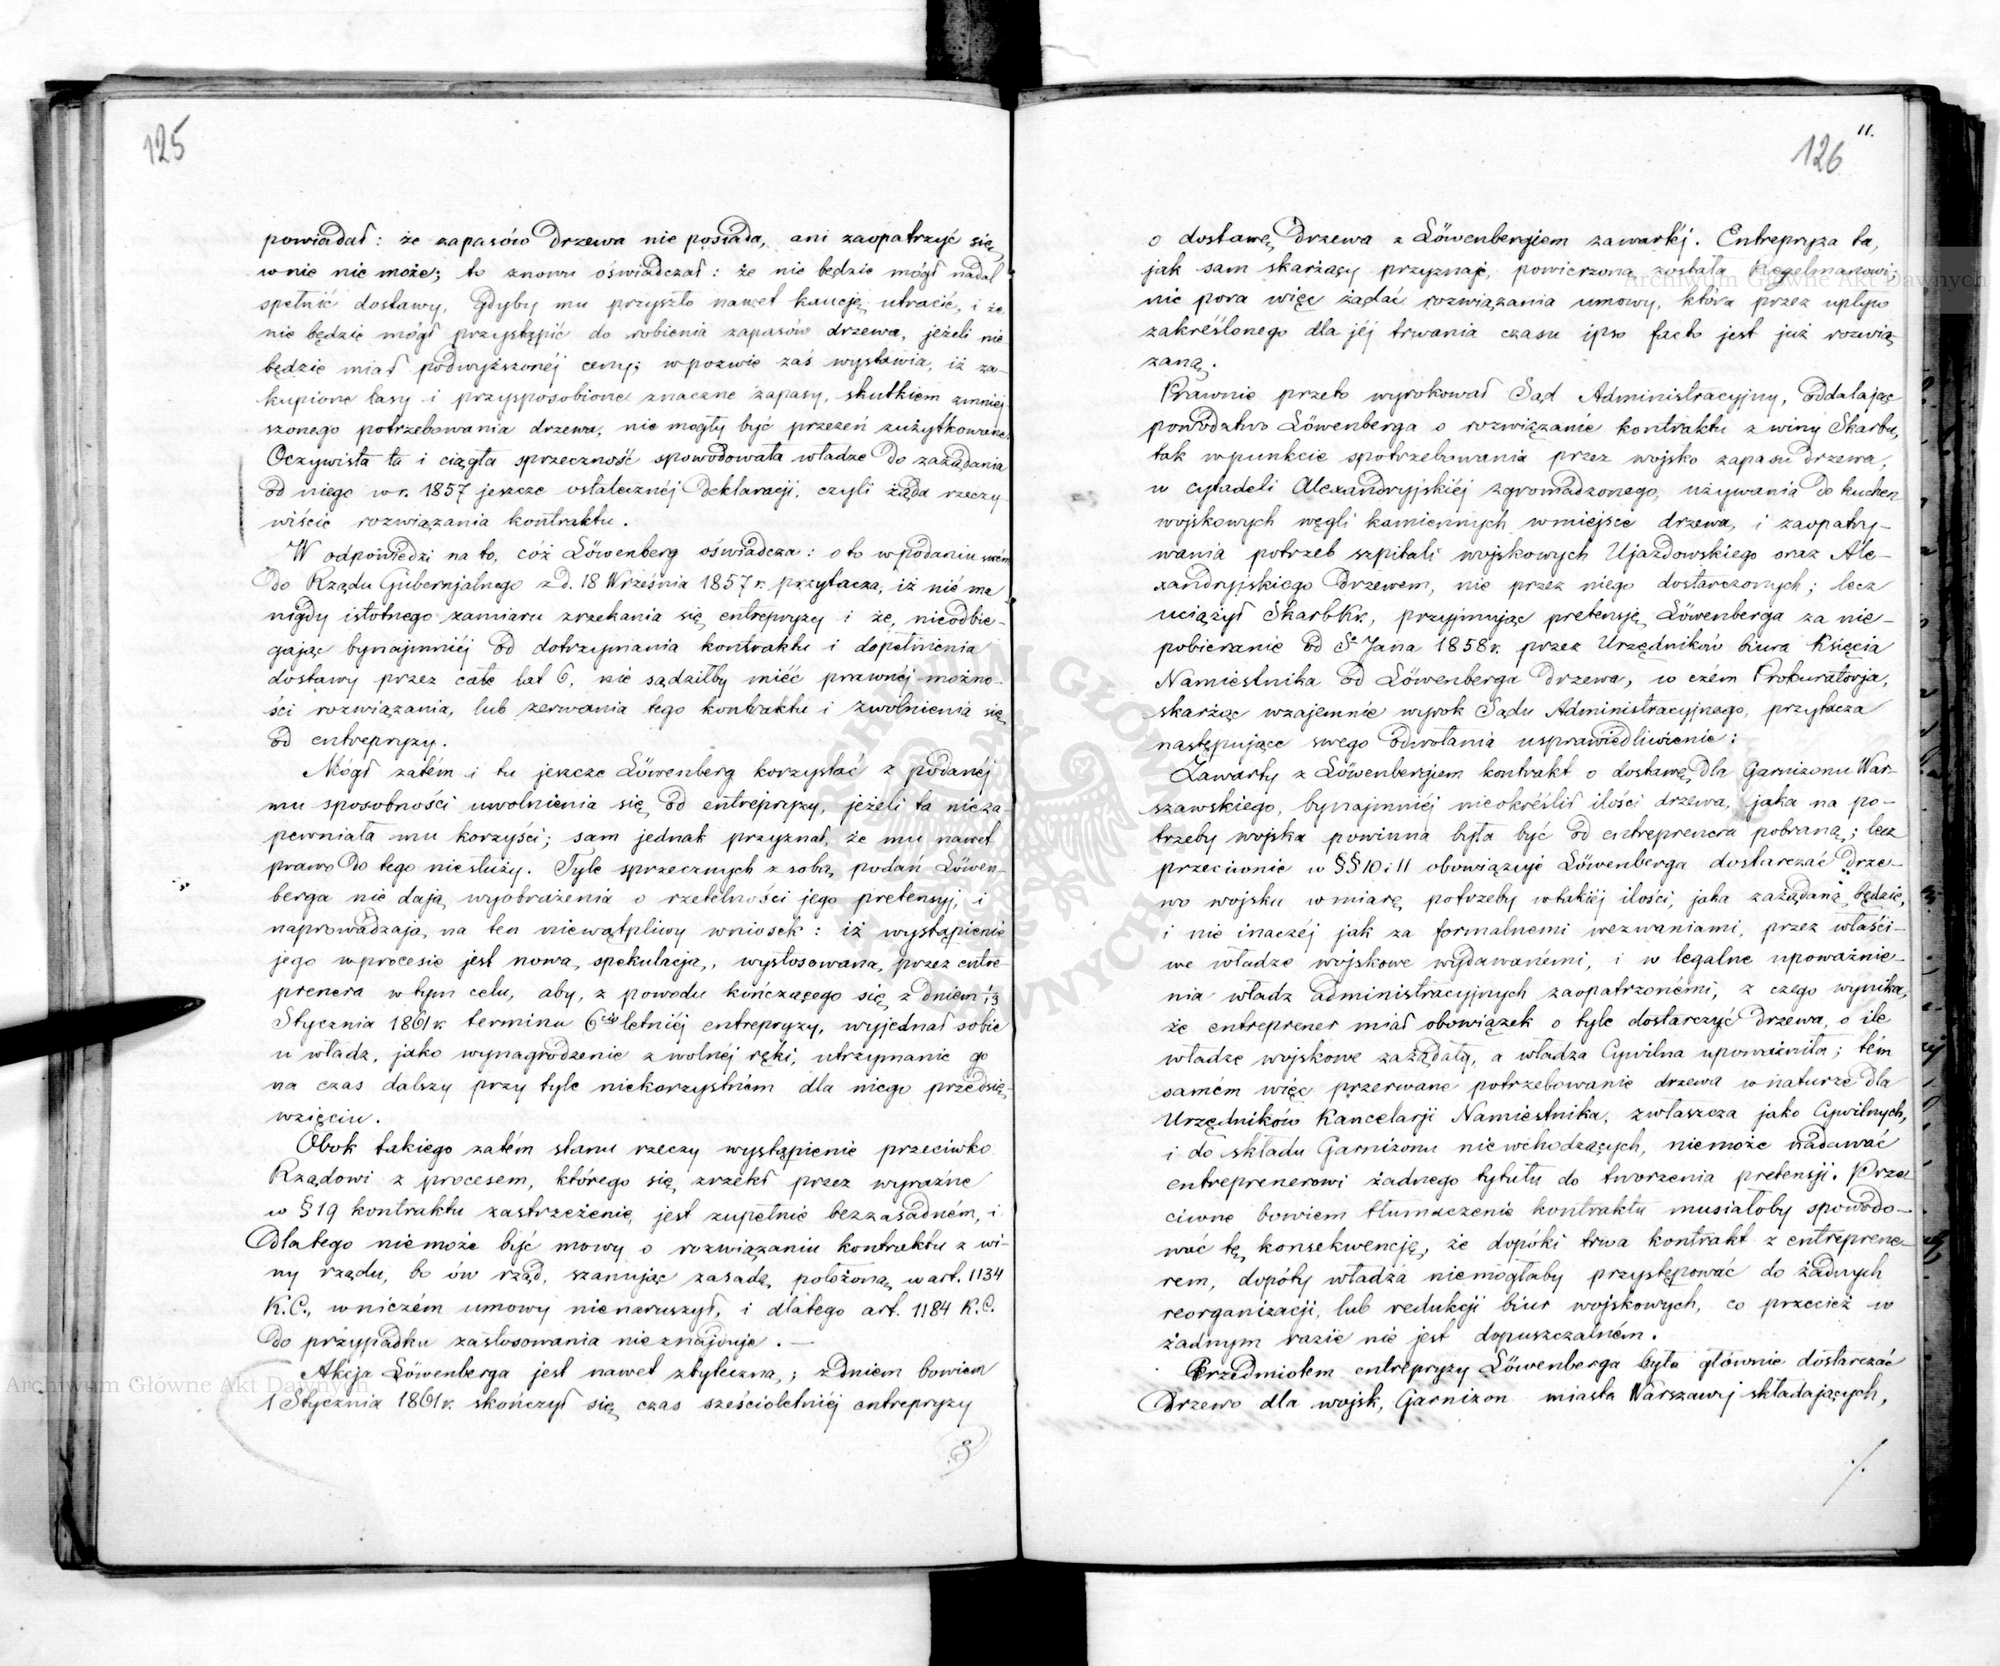 125
powiadał: że zapasów drzewa nie posiada, ani zaopatrzyć się
w nie nie może; to znowu oświadczał: że nie będzie mógł nadal
spełnić dostawy, gdyby mu przyszło nawet kaucję utracić, i że
nie będzie mógł przystąpić do robienia zapasów drzewa, jeżeli nie
będzie miał podwyższonéj ceny; w pozwie zaś wystawia, iż za-
kupione lasy i przysposobione znaczne zapasy, skutkiem zmniej-
szonego potrzebowania drzewa, nie mogły być przezeń zużytkowane.
Oczywista ta i ciągła sprzeczność spowodowała władze do zażądania
od niego w r. 1857 jeszcze ostatecznéj deklaracji, czyli żąda rzeczy-
wiście rozwiązania kontraktu.
W odpowiedzi na to, cóż Löwenberg oświadcza: oto w podaniu swém
do Rządu Gubernjalnego z d. 18 Września 1857 r. przytacza, iż nie ma
nigdy istotnego zamiaru zrzekania się entrepryzy i że, nieodbie-
gając bynajmniéj od dotrzymania kontraktu i dopełnienia
dostawy przez całe lat 6, nie sądziłby miéć prawnéj możno-
ści rozwiązania, lub zerwania tego kontraktu i zwolnienia się
od entrepryzy.
Mógł zatém i tu jeszcze Löwenberg korzystać z podanéj
mu sposobności uwolnienia się od entrepryzy, jeżeli ta nieza-
pewniała mu korzyści; sam jednak przyznał, że mu nawet
prawo do tego niesłuży. Tyle sprzecznych z sobą podań Löwen-
berga nie dają wyobrażenia o rzetelności jego pretensyj, i
naprowadzają na ten niewątpliwy wniosek: iż wystąpienie
jego w procesie jest nową spekulacją, wystosowaną przez entre-
prenera w tym celu, aby, z powodu kończącego się z dniem 1/13
Stycznia 1861 r. terminu 6cio letniéj entrepryzy, wyjednał sobie
u władz, jako wynagrodzenie z wolnéj ręki, utrzymanie go
na czas dalszy przy tyle niekorzystném dla niego przedsię-
wzięciu.
Obok takiego zatém stanu rzeczy wystąpienie przeciwko
Rządowi z procesem, którego się zrzekł przez wyraźne
w § 19 kontraktu zastrzeżenie, jest zupełnie bezzasadném, i
dlatego niemoże być mowy o rozwiązaniu kontraktu z wi-
ny rządu, bo ów rząd, szanując zasadę położoną w art. 1134
K.C., w niczém umowy nienaruszył, i dlatego art. 1184 K.C.
do przypadku zastosowania nieznajduje. —
Akcja Löwenberga jest nawet zbyteczną; z dniem bowiem
1 Stycznia 1861 r. skończył się czas sześcioletniéj entrepryzy
11.
126
o dostawę drzewa z Löwenbergiem zawartéj. Entrepryza ta,
jak sam skarżący przyznaje, powierzoną została Kegelmanowi;
nie pora więc żądać rozwiązania umowy, która przez upływ
zakréślonego dla jéj trwania czasu ipso facto jest już rozwią
zaną.
Prawnie przeto wyrokował Sąd Administracyjny, oddalając
powództwo Löwenberga o rozwiązanie kontraktu z winy Skarbu,
tak w punkcie spotrzebowania przez wojsko zapasu drzewa,
w cytadeli Alexandryjskiéj zgromadzonego, używania do kuchen
wojskowych węgli kamiennych w miejsce drzewa, i zaopatry-
wania potrzeb szpitali wojskowych Ujazdowskiego oraz Ale-
xandryjskiego drzewem, nie przez niego dostarczonych; lecz
uciążył Skarb Kr., przyjmując pretensję Löwenberga za nie-
pobieranie od Sgo Jana 1858 r. przez Urzędników biura Księcia
Namiestnika od Löwenberga drzewa, w czém Prokuratorja,
skarżąc wzajemnie wyrok Sądu Administracyjnego, przytacza
następujące swego odwołania usprawiedliwienie:
Zawarty z Löwenbergiem kontrakt o dostawę dla Garnizonu War-
szawskiego, bynajmniéj nieokréślił ilości drzewa, jaka na po-
trzeby wojska powinna była być od entreprenera pobraną; lecz
przeciwnie w §§ 10 i 11 obowiązuje Löwenberga dostarczać drze-
wo wojsku w miarę potrzeby w takiéj ilości, jaka zażądaną będzie,
i nie inaczéj jak za formalnemi wezwaniami, przez właści-
we władze wojskowe wydawanémi, i w legalne upoważnie-
nia władz administracyjnych zaopatrzonemi, z czego wynika,
że entreprener miał obowiązek o tyle dostarczyć drzewa, o ile
władze wojskowe zażądały, a władza Cywilna upoważniła; tém
samém więc przerwane potrzebowanie drzewa w naturze dla
Urzędników Kancelarji Namiestnika, zwłaszcza jako Cywilnych,
i do składu Garnizonu niewchodzących, niemoże nadawać
entreprenerowi żadnego tytułu do tworzenia pretensji. Prze
ciwne bowiem tłumaczenie kontraktu musiałoby spowodo-
wać tę konsekwencję, że dopóki trwa kontrakt z entreprene-
rem, dopóty władza niemogłaby przystępować do żadnych
reorganizacji, lub redukcji biur wojskowych, co przecież w
żadnym razie nie jest dopuszczalném.
Przedmiotem entrepryzy Löwenberga było głównie dostarczać
drzewo dla wojsk, Garnizon miasta Warszawy składających,
./.
Archiwum Główne Akt Dawnych
Archiwum Główne Akt Dawnych